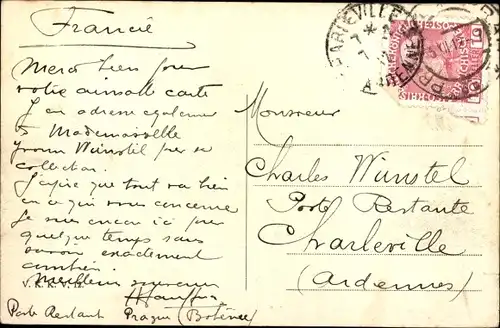 Francie
CHARLEVILLE
7 *
ARDENNES
Merci bien pour
votre aimable carte
J'en adresse également
à Mademoiselle
Yvonne Wunstel pour sa
collection.
J'espère que tout va bien
en ce qui vous concerne
Je suis encore ici pour
quelque temps sans
savoir exactement
combien.
Meilleur souvenir
Poste Restante Prague (Bohême)
Monsieur
Charles Wunstel
Poste Restante
Charleville
(Ardennes)